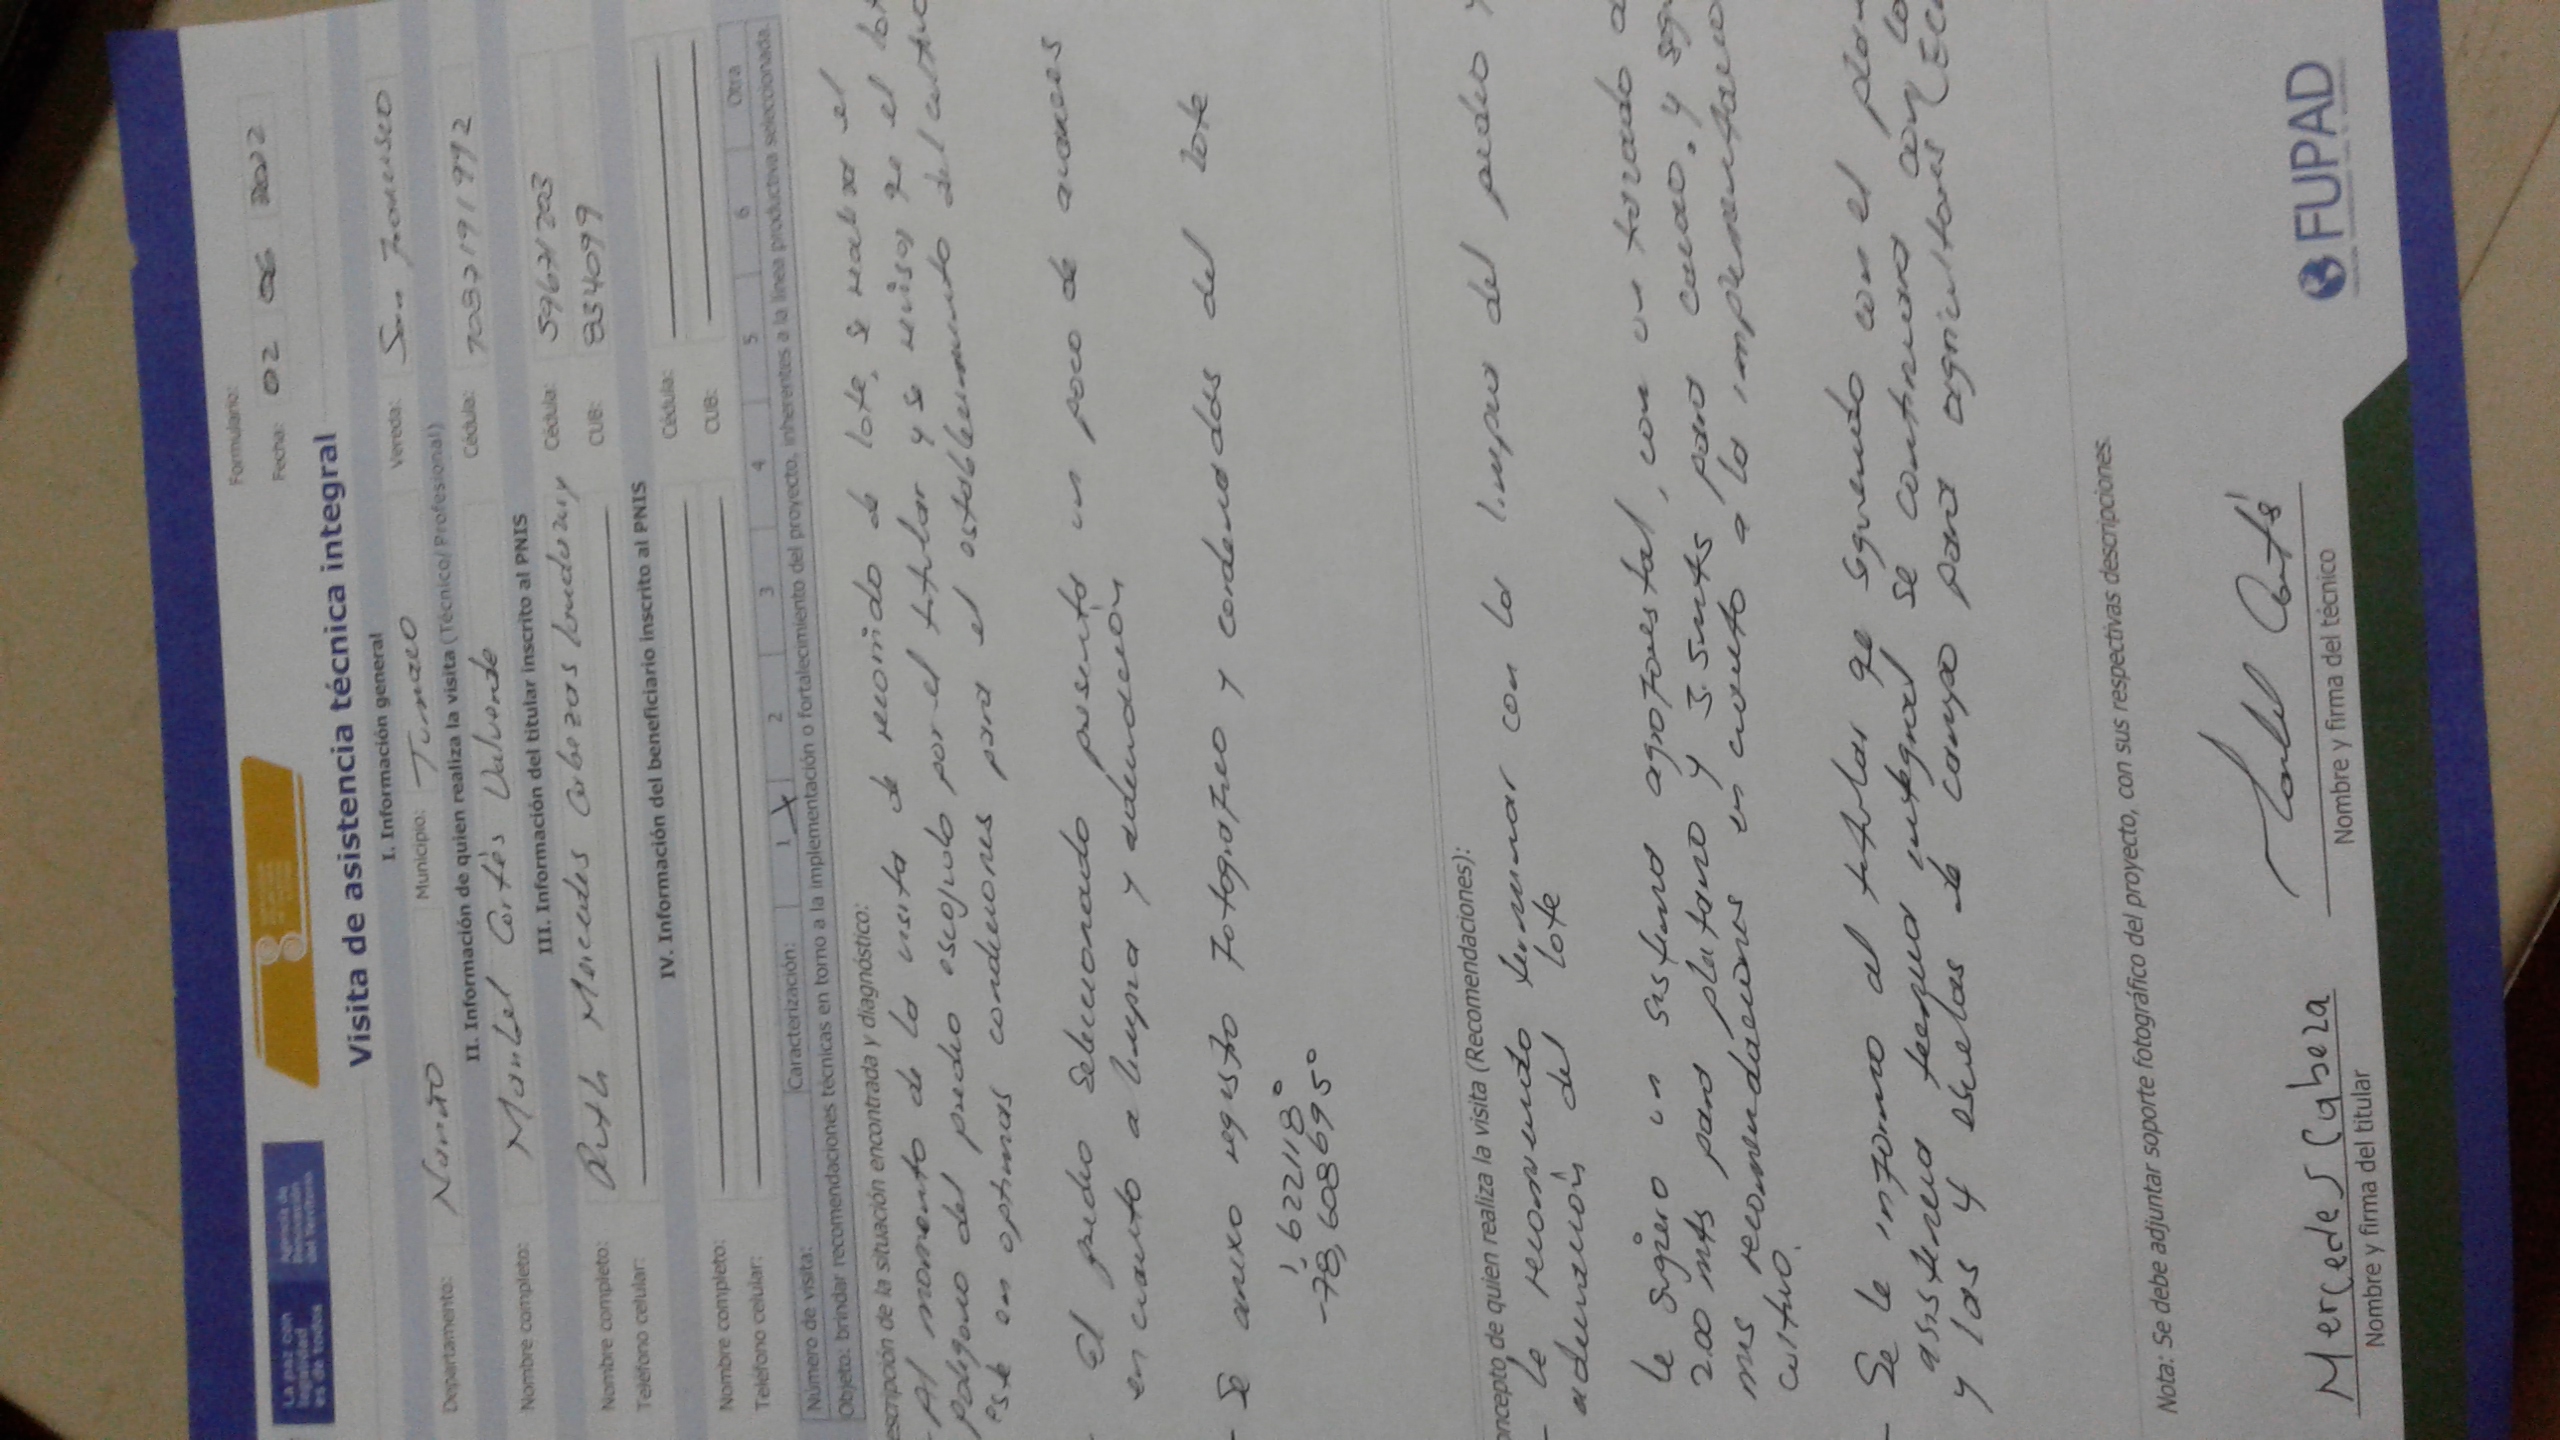 La paz con legalidad es de todos
Agencia de Renovación del Territorio
Formulario:
Fecha: 02 06 2022
Visita de asistencia técnica integral
I. Información general
Departamento: Nariño Municipio: Tumaco Vereda: San Francisco
II. Información de quien realiza la visita (Técnico/ Profesional)
Nombre completo: Maribel Cortés Valverde Cédula:
III. Información del titular inscrito al PNIS
Nombre completo: Ruth Mercedes Cabezas Cédula: 59671203
Teléfono celular: CUB: 834099
IV. Información del beneficiario inscrito al PNIS
Nombre completo: Cédula:
Teléfono celular: CUB:
Número de visita: Caracterización: 1 X 2 3 4 5 6 Otra
Objeto: brindar recomendaciones técnicas en torno a la implementación o fortalecimiento del proyecto, inherentes a la línea productiva seleccionada.
escripción de la situación encontrada y diagnóstico:
- Al momento de la visita de recorrido de lote, se realiza el
poligono del predio escojido por el titular y se reviso qe el lote
este en optimas condiciones para el establecimiento del cultivo
- El predio seleccionado presenta un poco de avances
en cuanto a limpia y adecuación
- Se anexo registo Fotografico y cordenadas del lote
1,622118°
-78,608695°
oncepto de quien realiza la visita (Recomendaciones):
- Le recomiendo terminar con la limpia del predio y
adecuación del lote
le sugiero un sistema agroforestal, con un trazado de
200 mts para platano y 3.5mts para cacao. y
mis recomendaciones en cuanto a la implementacion
cultivo.
- Se le informa al titular qe siguiendo con el plan
asistencia tecnica integral se continuara con
y las 4 escuelas de campo para agricultores (ECA
Nota: Se debe adjuntar soporte fotográfico del proyecto, con sus respectivas descripciones.
Mercedes Cabeza
Nombre y firma del titular
Maribel Cortés
Nombre y firma del técnico
FUPAD